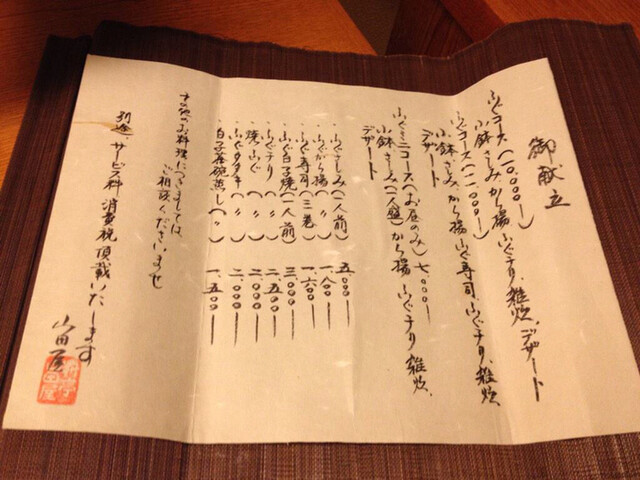 御献立
ふぐコース(一〇、〇〇〇ー)
小鉢、さしみ、から揚、ふぐチリ、雑炊、デザート
ふぐコース(一二、〇〇〇ー)
小鉢、さしみ、から揚、ふぐ寿司、ふぐチリ、雑炊、
デザート
ふぐミニコース(お昼のみ)七、〇〇〇ー
小鉢、さしみ(一人盤)から揚、ふぐチリ、雑炊、
デザート
・ふぐさしみ(一人前) 五、〇〇〇ー
・ふぐから揚(〃) 一、八〇〇ー
・ふぐ寿司(三巻) 一、六〇〇ー
・ふぐ白子焼(一人前) 三、〇〇〇ー
・ふぐチリ(〃) 二、五〇〇ー
・焼ふぐ(〃) 二、〇〇〇ー
・ふぐタタキ(〃) 二、〇〇〇ー
・白子茶碗蒸し(〃) 一、五〇〇ー
その他のお料理につきましては、
ご相談くださいませ
別途、サービス料、消費税頂戴いたします
山田屋